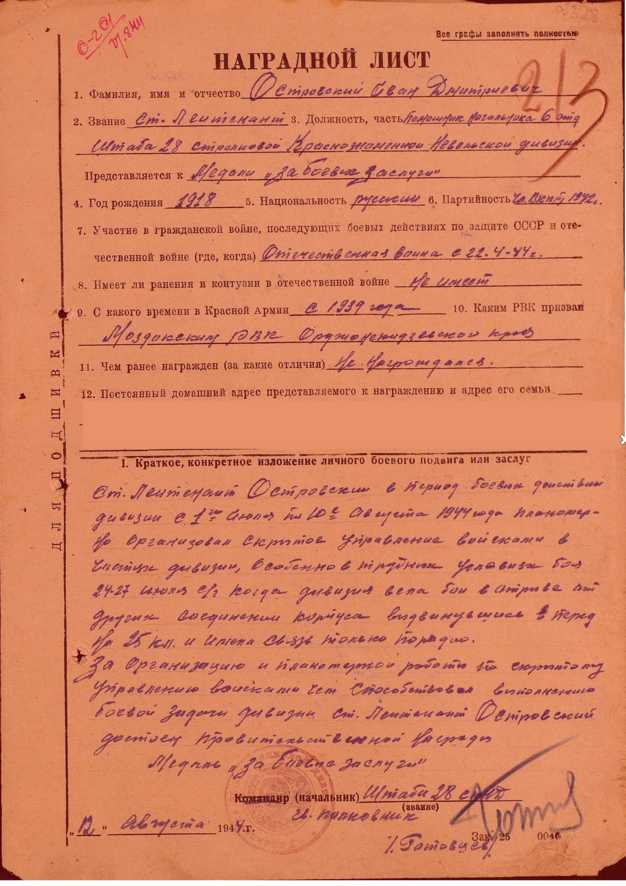 Все графы заполнять полностью
НАГРАДНОЙ ЛИСТ
1. Фамилия, имя и отчество Островский Иван Дмитриевич
2. Звание Ст. Лейтенант 3. Должность, часть Помощник Начальника 6 отд
Штаба 28 стрелковой Краснознаменной Невельской дивизии.
Представляется к Медали „За боевые заслуги"
4. Год рождения 1918 5. Национальность русский 6. Партийность
7. Участие в гражданской войне, последующих боевых действиях по защите СССР и оте-
чественной войне (где, когда) Отечественная война с 22.4-44г.
8. Имеет ли ранения и контузии в отечественной войне Не имеет
9. С какого времени в Красной Армии с 1939 года 10. Каким РВК призван
Моздокским РВК Орджоникидзевского края
11. Чем ранее награжден (за какие отличия) Не Награждался.
12. Постоянный домашний адрес представляемого к награждению и адрес его семьи
ДЛЯ ПОДШИВКИ
I. Краткое, конкретное изложение личного боевого подвига или заслуг
Ст. Лейтенант Островский в период боевых действий
дивизии с 1го Июля по 10е Августа 1944 года планомер-
но Организовал скрытое управление войсками в
частях дивизии, Особенно в трудных условиях боя
24-27 июля с/г когда дивизия вела бои в отрыве от
других соединений корпуса выдвинувшись вперед
на 25 кл. и имела связь только по радио.
За Организацию и планомерной работы по скрытому
управлению войсками чем способствовал выполнению
боевой задачи дивизии ст. Лейтенант Островский
достоин Правительственной Награды
Медаль „За боевые заслуги"
Командир (начальник) Штаба 28 сткд
(звание)
Гв. полковник
„12" Августа 1944 г.
Зак. 25 0046
/Готовцев/
2/3